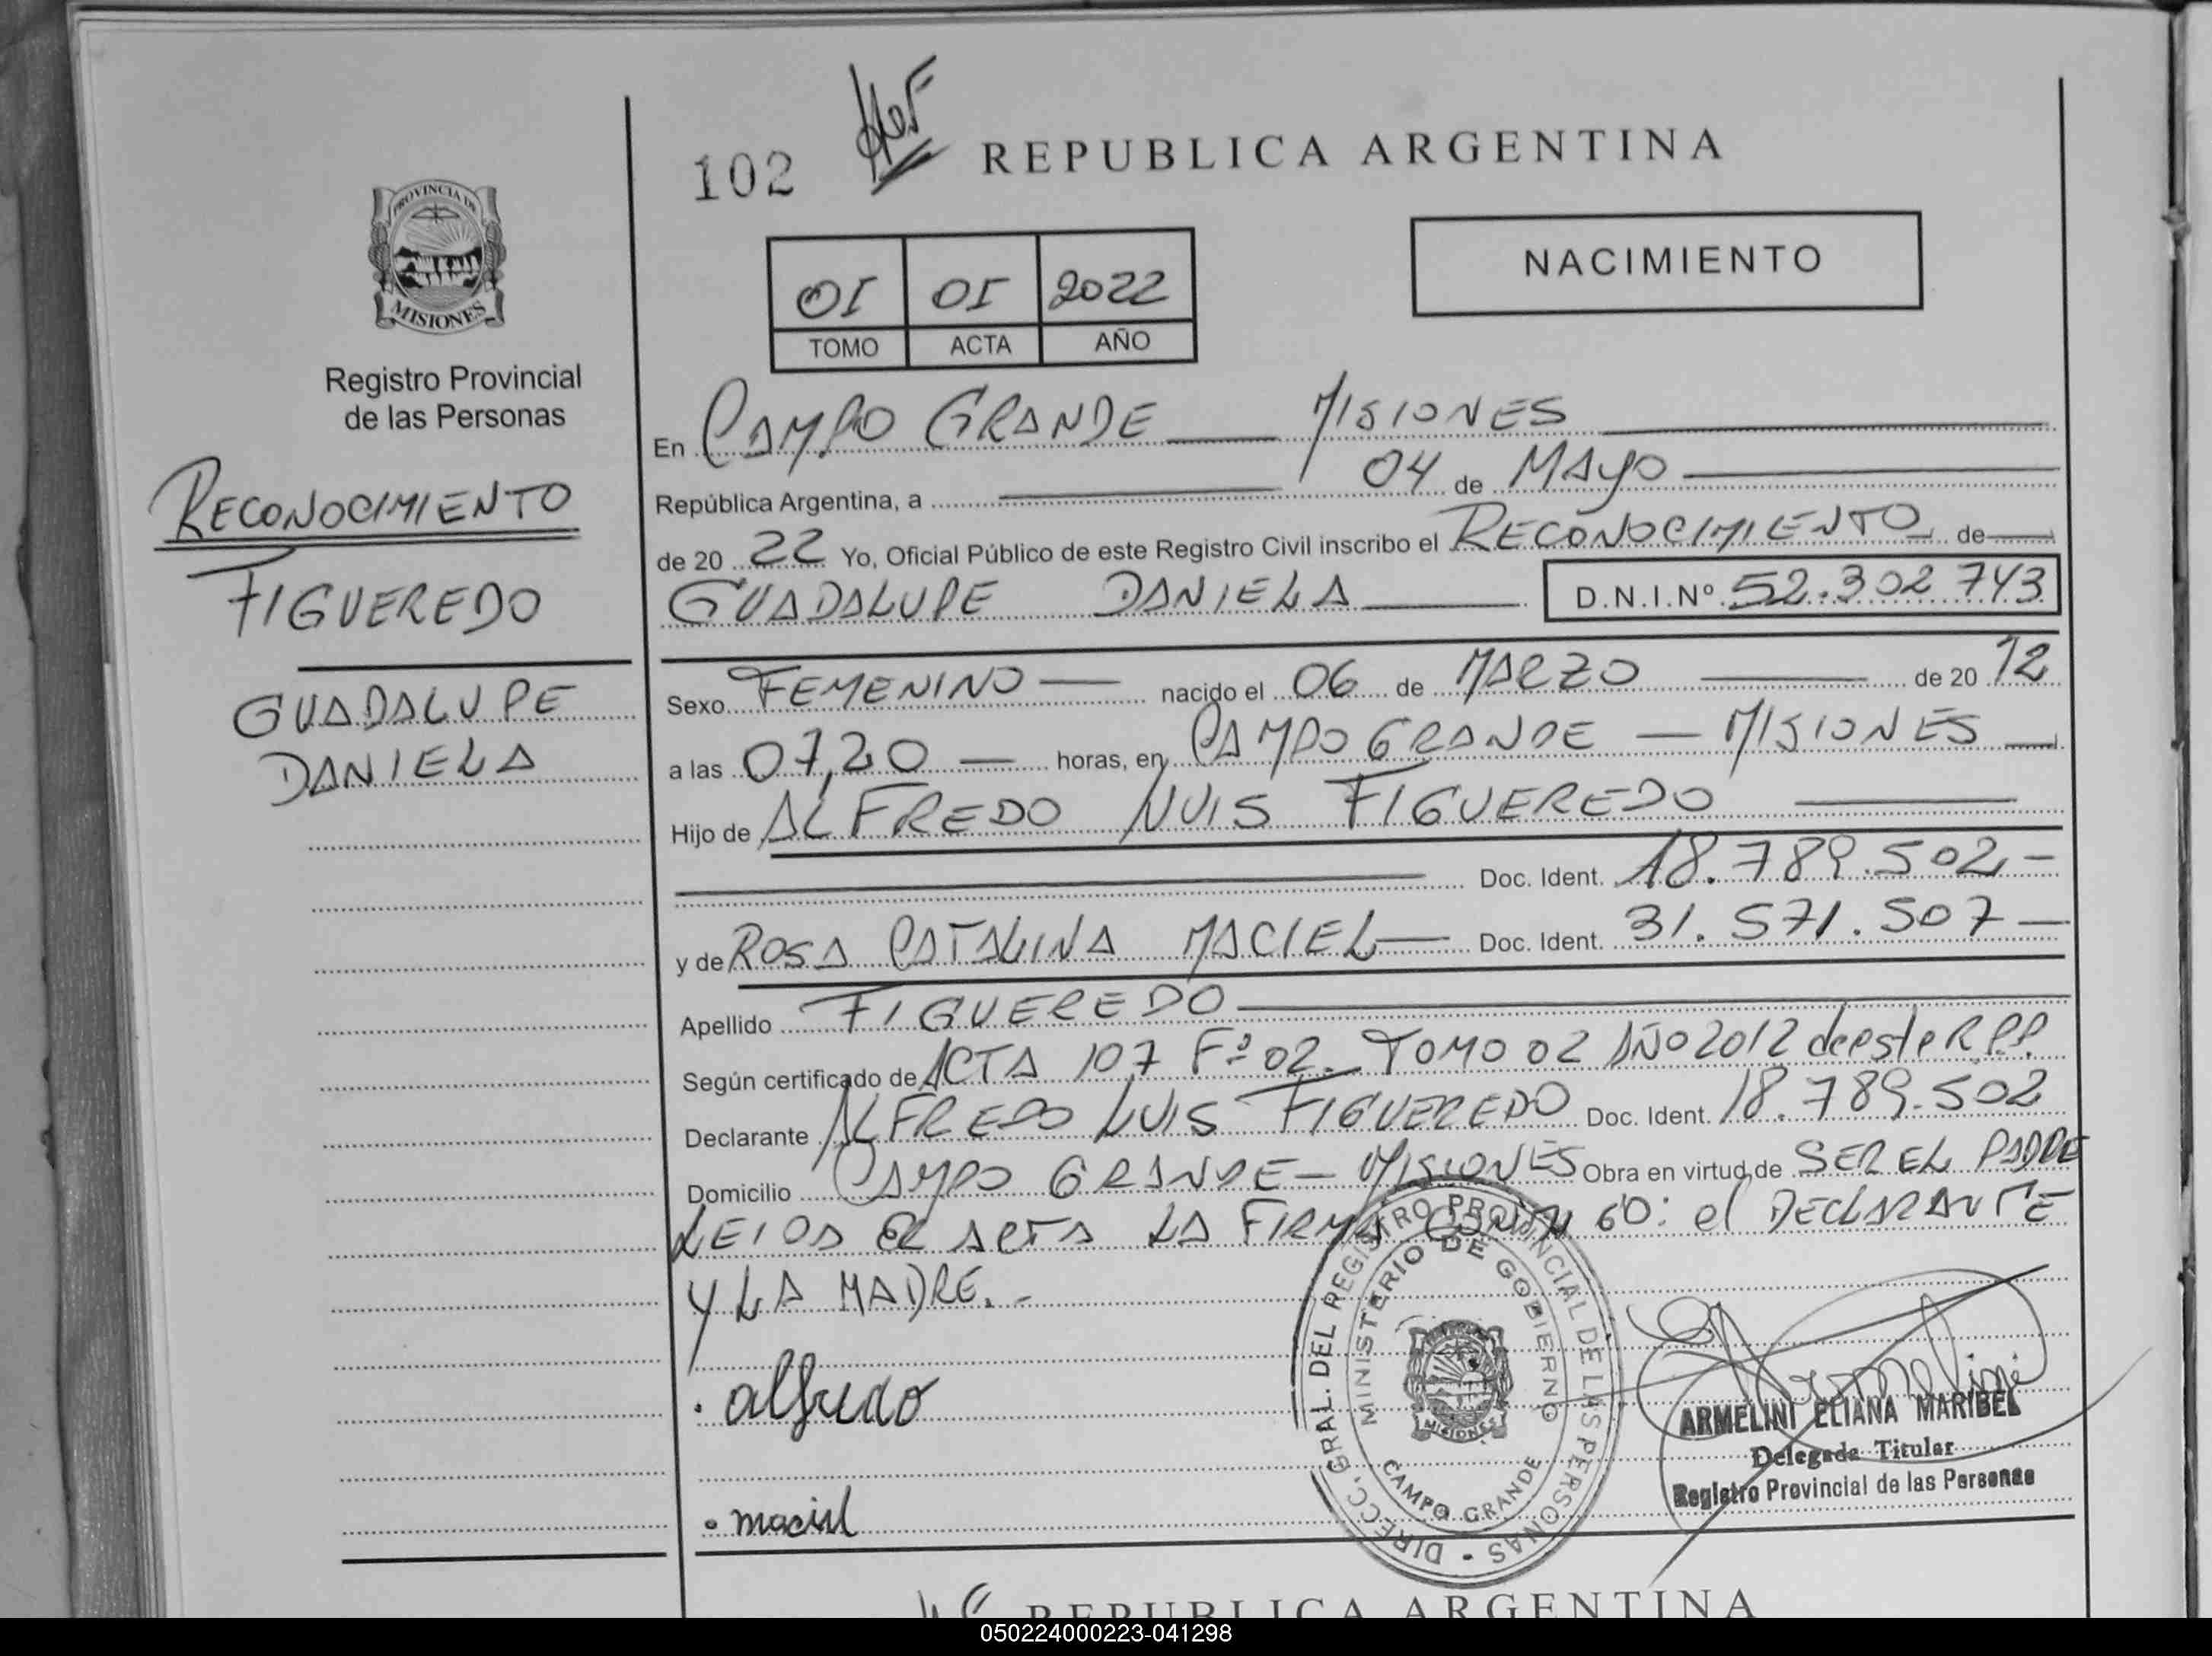 102
REPUBLICA ARGENTINA
PROVINCIA DE
MISIONES
Registro Provincial
de las Personas
NACIMIENTO
OI OI 2022
TOMO ACTA AÑO
RECONOCIMIENTO
FIGUEREDO
GUADALUPE
DANIELA
En CAMPO GRANDE MISIONES
República Argentina, a 04 de MAYO
de 20 22 Yo, Oficial Público de este Registro Civil inscribo el RECONOCIMIENTO de
GUADALUPE DANIELA D.N.I.Nº 52.302.743
Sexo FEMENINO nacido el 06 de MARZO de 20 12
a las 07,20 horas, en CAMPO GRANDE — MISIONES
Hijo de ALFREDO LUIS FIGUEREDO
Doc. Ident. 18.789.502-
y de ROSA CATALINA MACIEL Doc. Ident. 31.571.507
Apellido FIGUEREDO
Según certificado de ACTA 107 Fº 02. TOMO 02 AÑO 2012 de este R.P.P.
Declarante ALFREDO LUIS FIGUEREDO Doc. Ident. 18.789.502
Domicilio CAMPO GRANDE - MISIONES Obra en virtud de SER EL PADRE
LEIDA EL ACTA LA FIRMA el DECLARANTE
Y LA MADRE.-
alfredo
maciel
DIRECC. GRAL. DEL REGISTRO PROVINCIAL DE LAS PERSONAS -
MINISTERIO DE GOBIERNO
MISIONES
CAMPO GRANDE
ARMELINI ELIANA MARIBEL
Delegada Titular
Registro Provincial de las Personas
REPUBLICA ARGENTINA
050224000223-041298